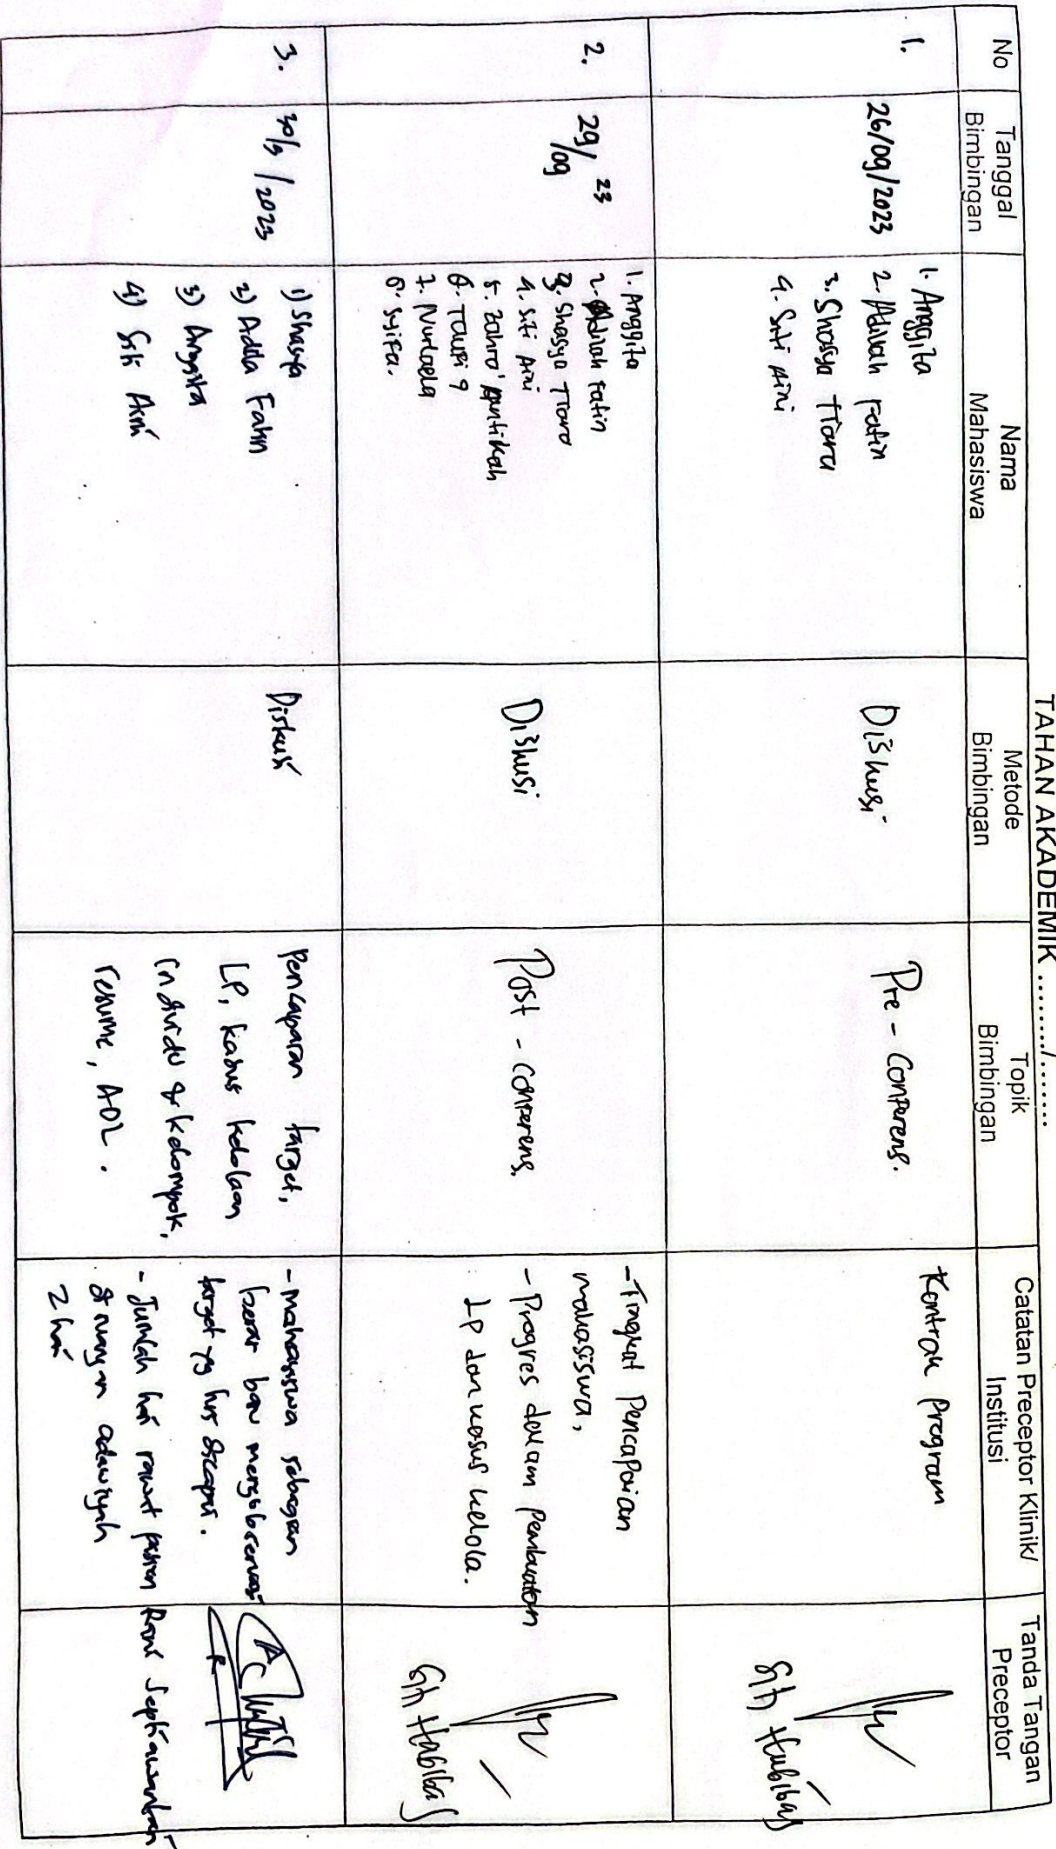 TAHAN AKADEMIK ......../........
No
Tanggal
Bimbingan
Nama
Mahasiswa
Metode
Bimbingan
Topik
Bimbingan
Catatan Preceptor Klinik/
Institusi
Tanda Tangan
Preceptor
1.
26/09/2023
1. Anggita
2. Adilah Fatin
3. Shasya Tiara
4. Siti Aini
Diskusi
Pre - Conferens.
Kontrak Program
Siti
2.
29/09 23
1. Anggita
2. Adilah Fatin
3. Shasya Tiara
4. Siti Aini
5. Zahro'
6.
7. Nurlaela
8. Syifa.
Diskusi
Post - Conferens.
- Tingkat Pencapaian
mahasiswa,
- Progres dalam pembuatan
LP dan kasus kelola.
Siti
3.
30/9/2023
1) Shasya
2) Adila Fatin
3) Anggita
4) Siti Aini
Diskusi
Pencapaian target,
LP, kasus kelolaan
individu & kelompok,
resume, ADL.
- Mahasiswa sebagian
besar baru mengobservasi
target yg hrs dicapai.
- Jumlah hari rawat pasien
di ruangan adawiyah
2 hari